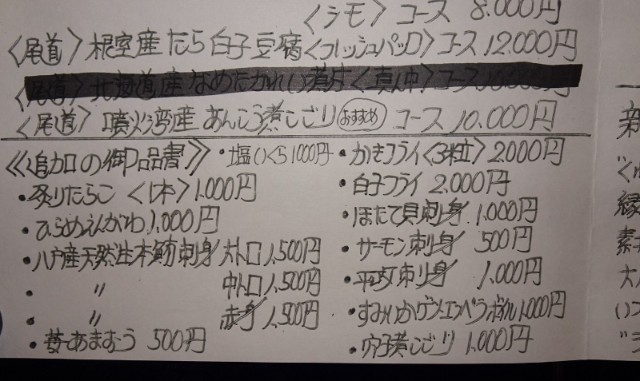 〈シモ〉コース 8.000円
〈尾道〉根室産たら白子豆腐〈フレッシュパック〉コース 12.000円
〈尾道〉噴火湾産 あんこう煮こごり おすすめ コース 10.000円
《追加の御品書》 ・塩いくら1000円
・炙りたらこ〈1本〉1.000円
・ひらめえんがわ1,000円
・八戸産天然生本鮪刺身 大トロ 1,500円
・ 〃 中トロ 1,500円
・ 〃 赤身 1,500円
・苺あまおう 500円
・かきフライ〈3粒〉2.000円
・白子フライ 2.000円
・ほたて貝刺身 1.000円
・サーモン刺身 500円
・平政刺身 1.000円
・すみいかゲソエンペラボイル1000円
・穴子煮こごり 1.000円
新
縁
素
大
いつ